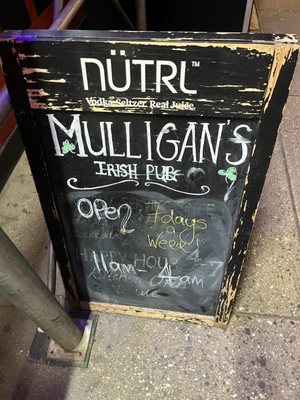 NÜTRL™
Vodka Seltzer. Real Juice.
MULLIGAN'S
IRISH PUB
OPEN 7 days
a
Week!
HAPPY HOUR 4-7
11am - 4am